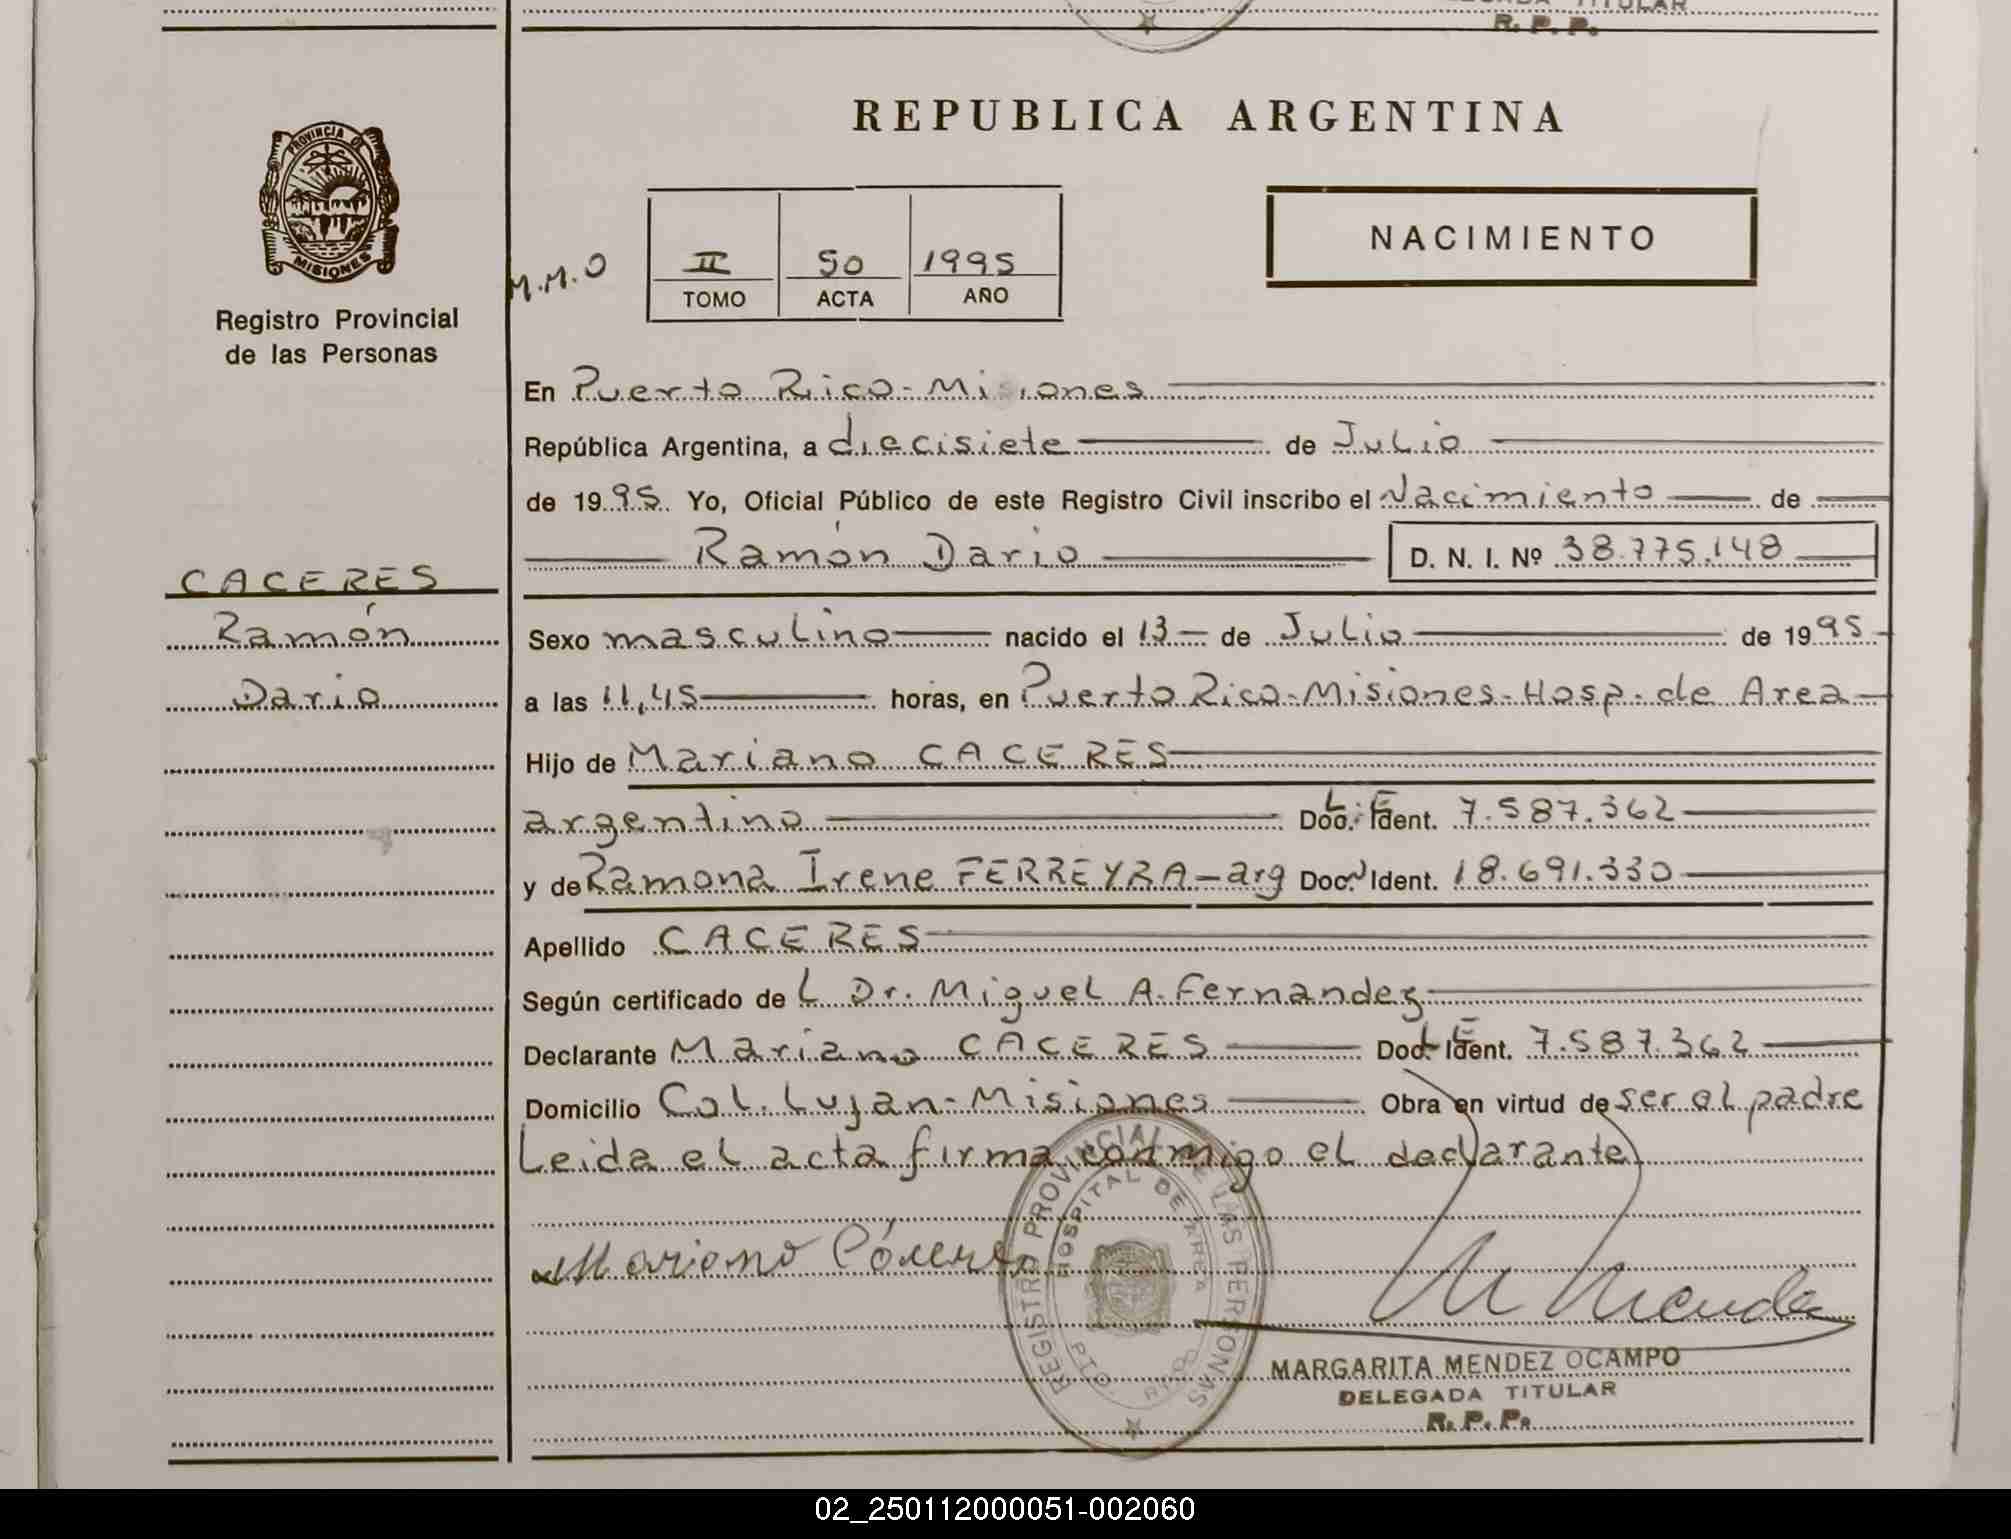 TITULAR
R. P. P.
REPUBLICA ARGENTINA
PROVINCIA DE
MISIONES
Registro Provincial
de las Personas
M.M.O
II 50 1995
TOMO ACTA AÑO
NACIMIENTO
En Puerto Rico-Misiones
República Argentina, a diecisiete de Julio
de 1995. Yo, Oficial Público de este Registro Civil inscribo el Nacimiento de
Ramón Dario D. N. I. Nº 38.775.148
CACERES
Ramón
Dario
Sexo masculino nacido el 13 de Julio de 1995
a las 11,45 horas, en Puerto Rico-Misiones-Hosp. de Area
Hijo de Mariano CACERES
argentino L.E Doc. Ident. 7.587.362
y de Ramona Irene FERREYRA-arg Doc. Ident. 18.691.330
Apellido CACERES
Según certificado de L Dr. Miguel A. Fernandez
Declarante Mariano CACERES L.E Doc. Ident. 7.587.362
Domicilio Col. Lujan-Misiones Obra en virtud de ser el padre
Leida el acta firma conmigo el declarante
Mariano Cáceres
M Mendez
REGISTRO PROVINCIAL DE LAS PERSONAS
HOSPITAL DE AREA
PTO. RICO
MARGARITA MENDEZ OCAMPO
DELEGADA TITULAR
R. P. P.
02_250112000051-002060